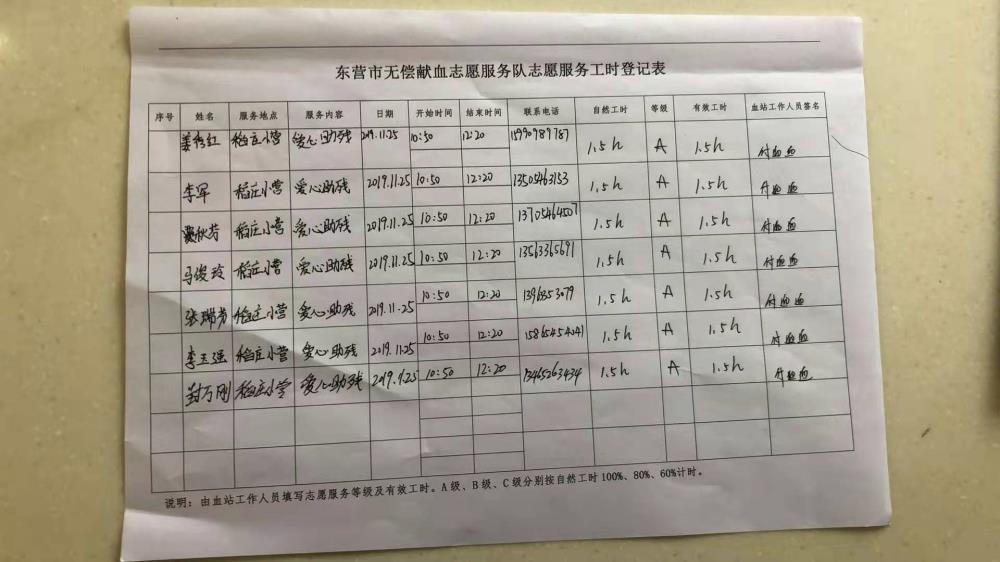 东营市无偿献血志愿服务队志愿服务工时登记表
序号 姓名 服务地点 服务内容 日期 开始时间 结束时间 联系电话 自然工时 等级 有效工时 血站工作人员签名
姜秀红 稻庄小营 爱心助残 2019.11.25 10:50 12:20 15990989789 1.5h A 1.5h 付血血
李军 稻庄小营 爱心助残 2019.11.25 10:50 12:20 13505463153 1.5h A 1.5h 付血血
秋芳 稻庄小营 爱心助残 2019.11.25 10:50 12:20 13705464507 1.5h A 1.5h 付血血
马俊玲 稻庄小营 爱心助残 2019.11.25 10:50 12:20 13563365691 1.5h A 1.5h 付血血
张瑞芳 稻庄小营 爱心助残 2019.11.25 10:50 12:20 1.5h A 1.5h 付血血
李玉强 稻庄小营 爱心助残 2019.11.25 10:50 12:20 15865454041 1.5h A 1.5h 付血血
封万刚 稻庄小营 爱心助残 10:50 12:20 13465263434 1.5h A 1.5h 付血血
说明：由血站工作人员填写志愿服务等级及有效工时。A级、B级、C级分别按自然工时100%、80%、60%计时。